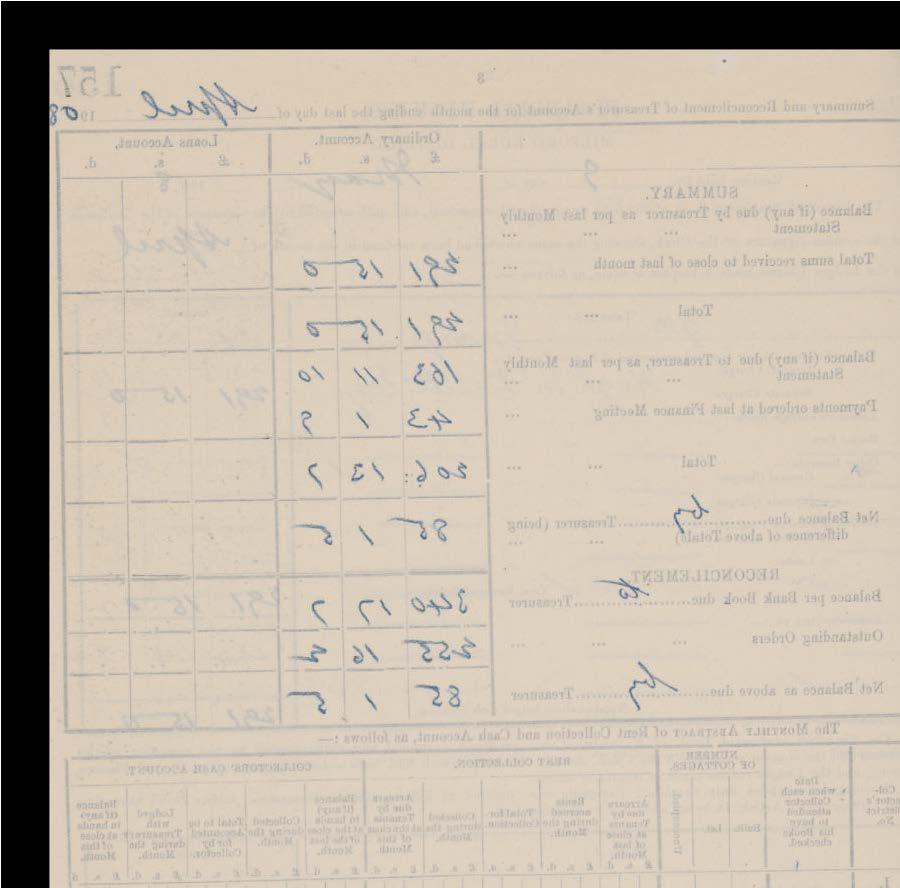 157
3
Summary and Reconcilement of Treasurer's Account for the month ending the last day of April 1908
Ordinary Account. Loans Account.
£ s. d. £ s. d.
SUMMARY.
Balance (if any) due by Treasurer as per last Monthly
Statement ... ... ...
Total sums received to close of last month ... 291 15 0
Total ... ... 291 15 0
Balance (if any) due to Treasurer, as per last Monthly
Statement ... ... ... 163 11 10
Payments ordered at last Finance Meeting ... 43 1 9
Total ... ... 206 13 7
Net Balance due by Treasurer (being
difference of above Totals) ... ... 85 1 5
RECONCILEMENT.
Balance per Bank Book due Treasurer 340 17 7
Outstanding Orders ... ... ... 255 16 2
Net Balance as above due by Treasurer 85 1 5
The MONTHLY ABSTRACT of Rent Collection and Cash Account, as follows :—
NUMBER OF COTTAGES. RENT COLLECTION. COLLECTORS' CASH ACCOUNT
Collector's District No.
Date when each Collector attended to have his Books checked.
Built. Let. Unoccupied
Arrears due by Tenants at close of last Month.
Rents accrued during the Month.
Total for Collection
Collected during the Month.
Arrears due by Tenants at the close of this Month.
Balance (if any) in hands at the close of the last Month.
Collected during the Month.
Total to be Accounted for by Collector.
Lodged with Treasurer during the Month.
Balance (if any) in hands at close of this Month.
£ s. d. £ s. d. £ s. d. £ s. d. £ s. d. £ s. d. £ s. d. £ s. d. £ s. d. £ s. d